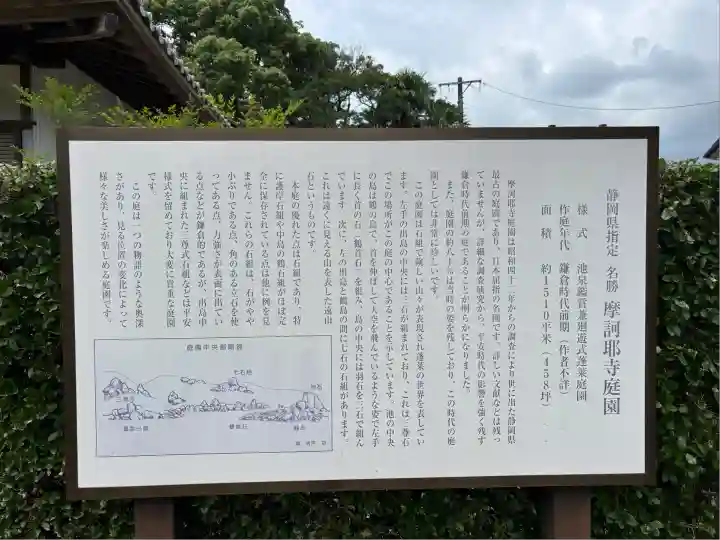 静岡県指定 名勝 摩訶耶寺庭園
様式 池泉鑑賞兼廻遊式蓬莱庭園
作庭年代 鎌倉時代前期(作者不詳)
面積 約1510平米(458坪)
摩訶耶寺庭園は昭和四十三年からの調査により世に出た静岡県
最古の庭園であり、日本屈指の名園です。詳しい文献などは残っ
ていませんが、詳細な調査研究から、平安時代の影響を強く残す
鎌倉時代前期の庭であることが明らかになりました。
また、庭園の約八十%は当時の姿を残しており、この時代の庭
園としては非常に珍しいです。
この庭園は石組で険しい山々が表現され蓬莱の世界を表してい
ます。左手の出島の中央には三石が組まれており、これは三尊石
でこの場所がこの庭の中心であることを示しています。池の中央
の島は鶴の島で、首を伸ばして大空を飛んでいるような姿で左手
に長く首の石(鶴首石)を組み、島の中央には羽石を三石で組ん
でいます。次に、左の出島と鶴島の間に七石の石組があります。
これは遠くに見える山を表した遠山
石というものです。
本庭の優れた点は石組であり、特
に護岸石組や中島の鶴石組がほぼ完
全に保存されている点は他に例を見
ません。これらの石組は、石がやや
小ぶりである点、角のある立石を使
ってある点、力強さが表面に出てい
る点などが鎌倉的であるが、出島中
央に組まれた三尊式石組などは平安
様式を留めており大変に貴重な庭園
です。
この庭は一つの物語のような奥深
さがあり、見る位置の変化によって
様々な美しさが楽しめる庭園です。
七石組
三尊石
羽石
鶴首石